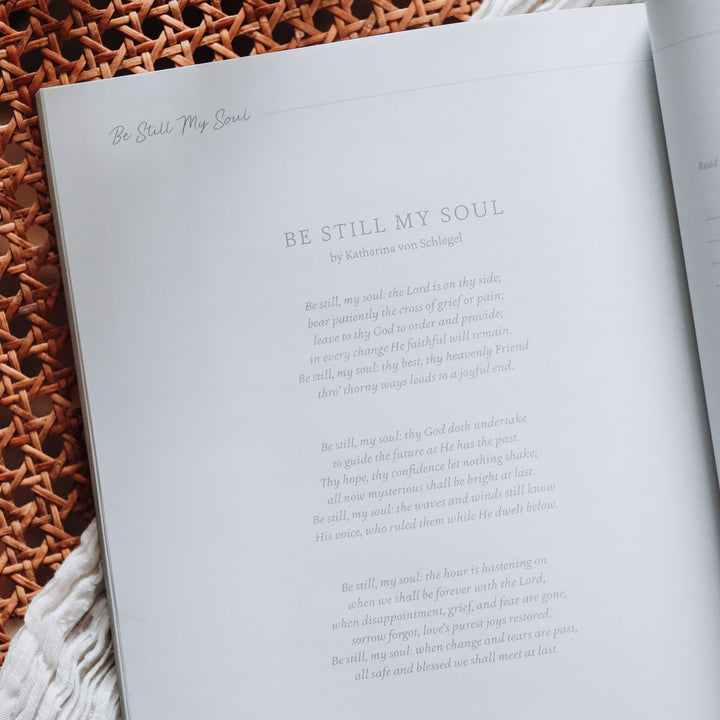 Be Still My Soul
BE STILL MY SOUL
by Katharina von Schlegel
Be still, my soul: the Lord is on thy side;
bear patiently the cross of grief or pain;
leave to thy God to order and provide;
in every change He faithful will remain.
Be still, my soul: thy best, thy heavenly Friend
thro' thorny ways leads to a joyful end.
Be still, my soul: thy God doth undertake
to guide the future as He has the past.
Thy hope, thy confidence let nothing shake;
all now mysterious shall be bright at last.
Be still, my soul: the waves and winds still know
His voice, who ruled them while He dwelt below.
Be still, my soul: the hour is hastening on
when we shall be forever with the Lord,
when disappointment, grief, and fear are gone,
sorrow forgot, love's purest joys restored.
Be still, my soul: when change and tears are past,
all safe and blessed we shall meet at last.
Read